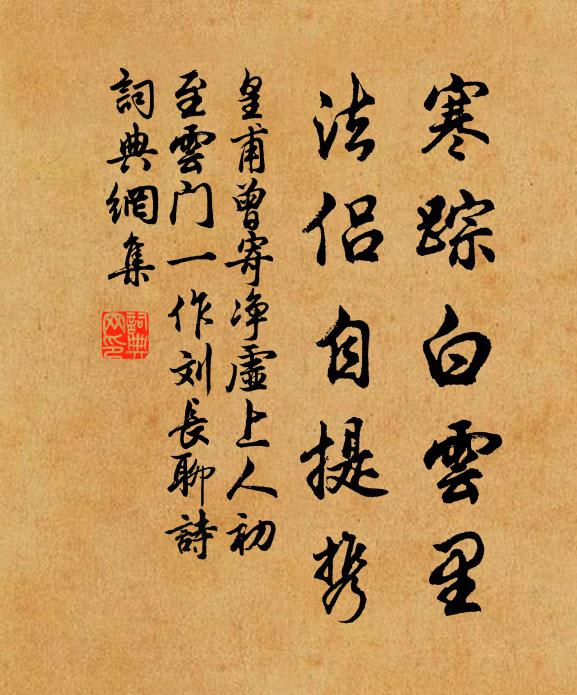 寒踪白雲里
法侣自提携
皇甫曾寄净虛上人初
至雲门一作刘長聊詩
詞典網集
詞典
网印